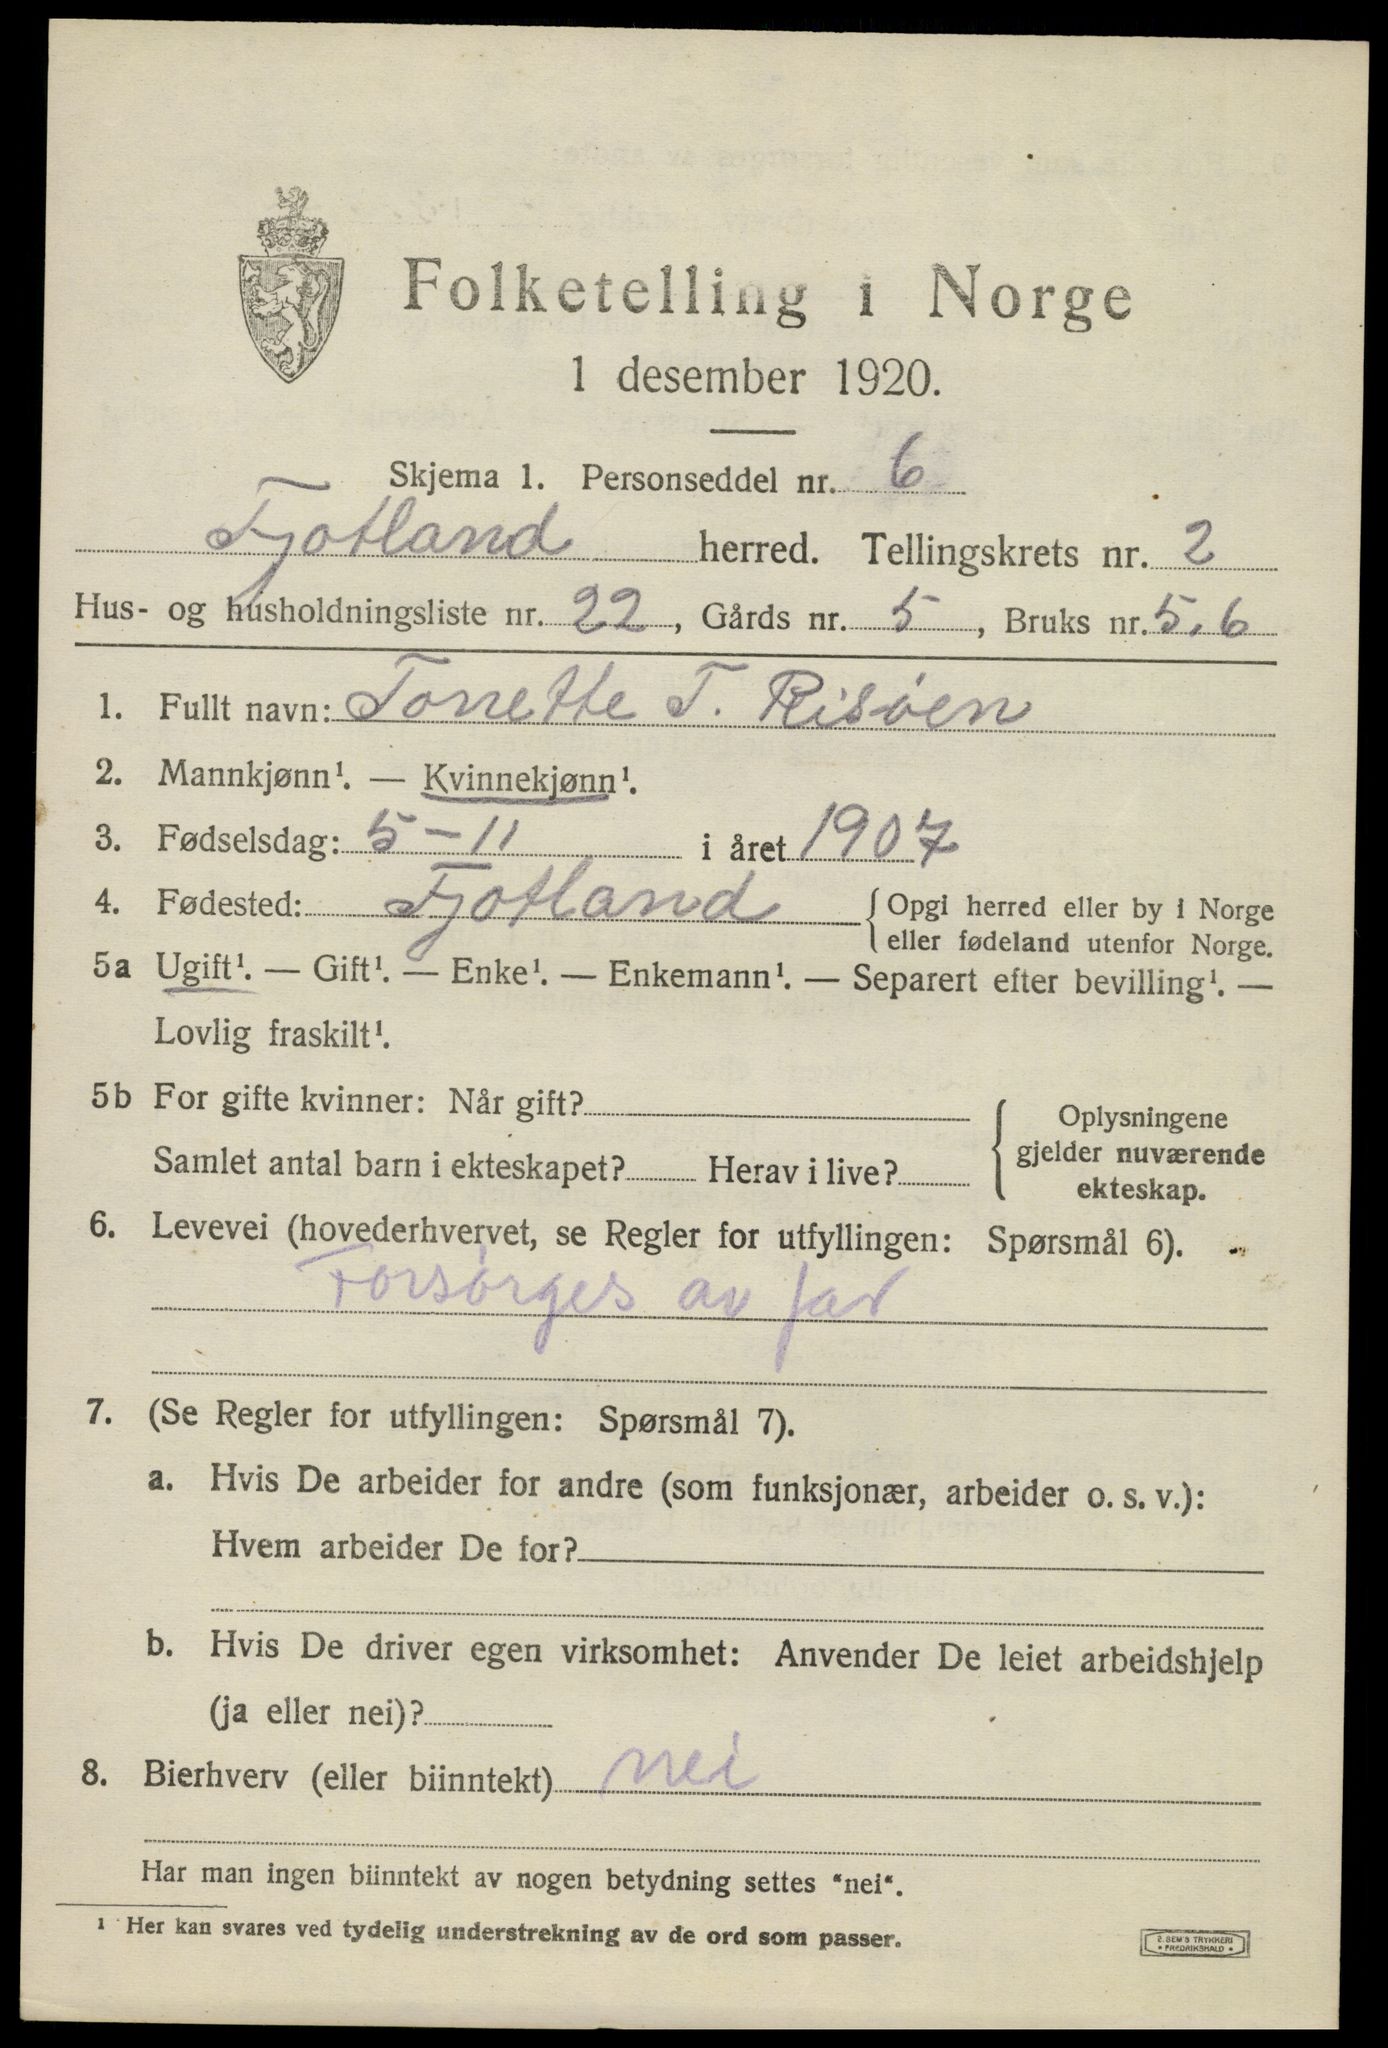 Folketelling i Norge
1 desember 1920.
Skjema 1. Personseddel nr. 6
Fjotland herred. Tellingskrets nr. 2
Hus- og husholdningsliste nr. 22, Gårds nr. 5, Bruks nr. 5.6
1. Fullt navn: Tonette T. Risöen
2. Mannkjønn¹. — Kvinnekjønn¹.
3. Fødselsdag: 5-11 i året 1907
4. Fødested: Fjotland { Opgi herred eller by i Norge
eller fødeland utenfor Norge.
5a Ugift¹. — Gift¹. — Enke¹. — Enkemann¹. — Separert efter bevilling¹. —
Lovlig fraskilt¹.
5b For gifte kvinner: Når gift?
Samlet antal barn i ekteskapet? Herav i live?
{ Oplysningene
gjelder nuværende
ekteskap.
6. Levevei (hovederhvervet, se Regler for utfyllingen: Spørsmål 6).
Forsörges av far
7. (Se Regler for utfyllingen: Spørsmål 7).
a. Hvis De arbeider for andre (som funksjonær, arbeider o. s. v.):
Hvem arbeider De for?
b. Hvis De driver egen virksomhet: Anvender De leiet arbeidshjelp
(ja eller nei)?
8. Bierhverv (eller biinntekt) nei
Har man ingen biinntekt av nogen betydning settes "nei".
1 Her kan svares ved tydelig understrekning av de ord som passer.
E. SEM'S TRYKKERI
• FREDRIKSHALD •